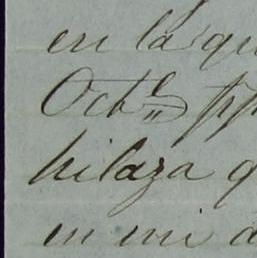 en la qu
Octb.e pp
hilaza q
en mi a